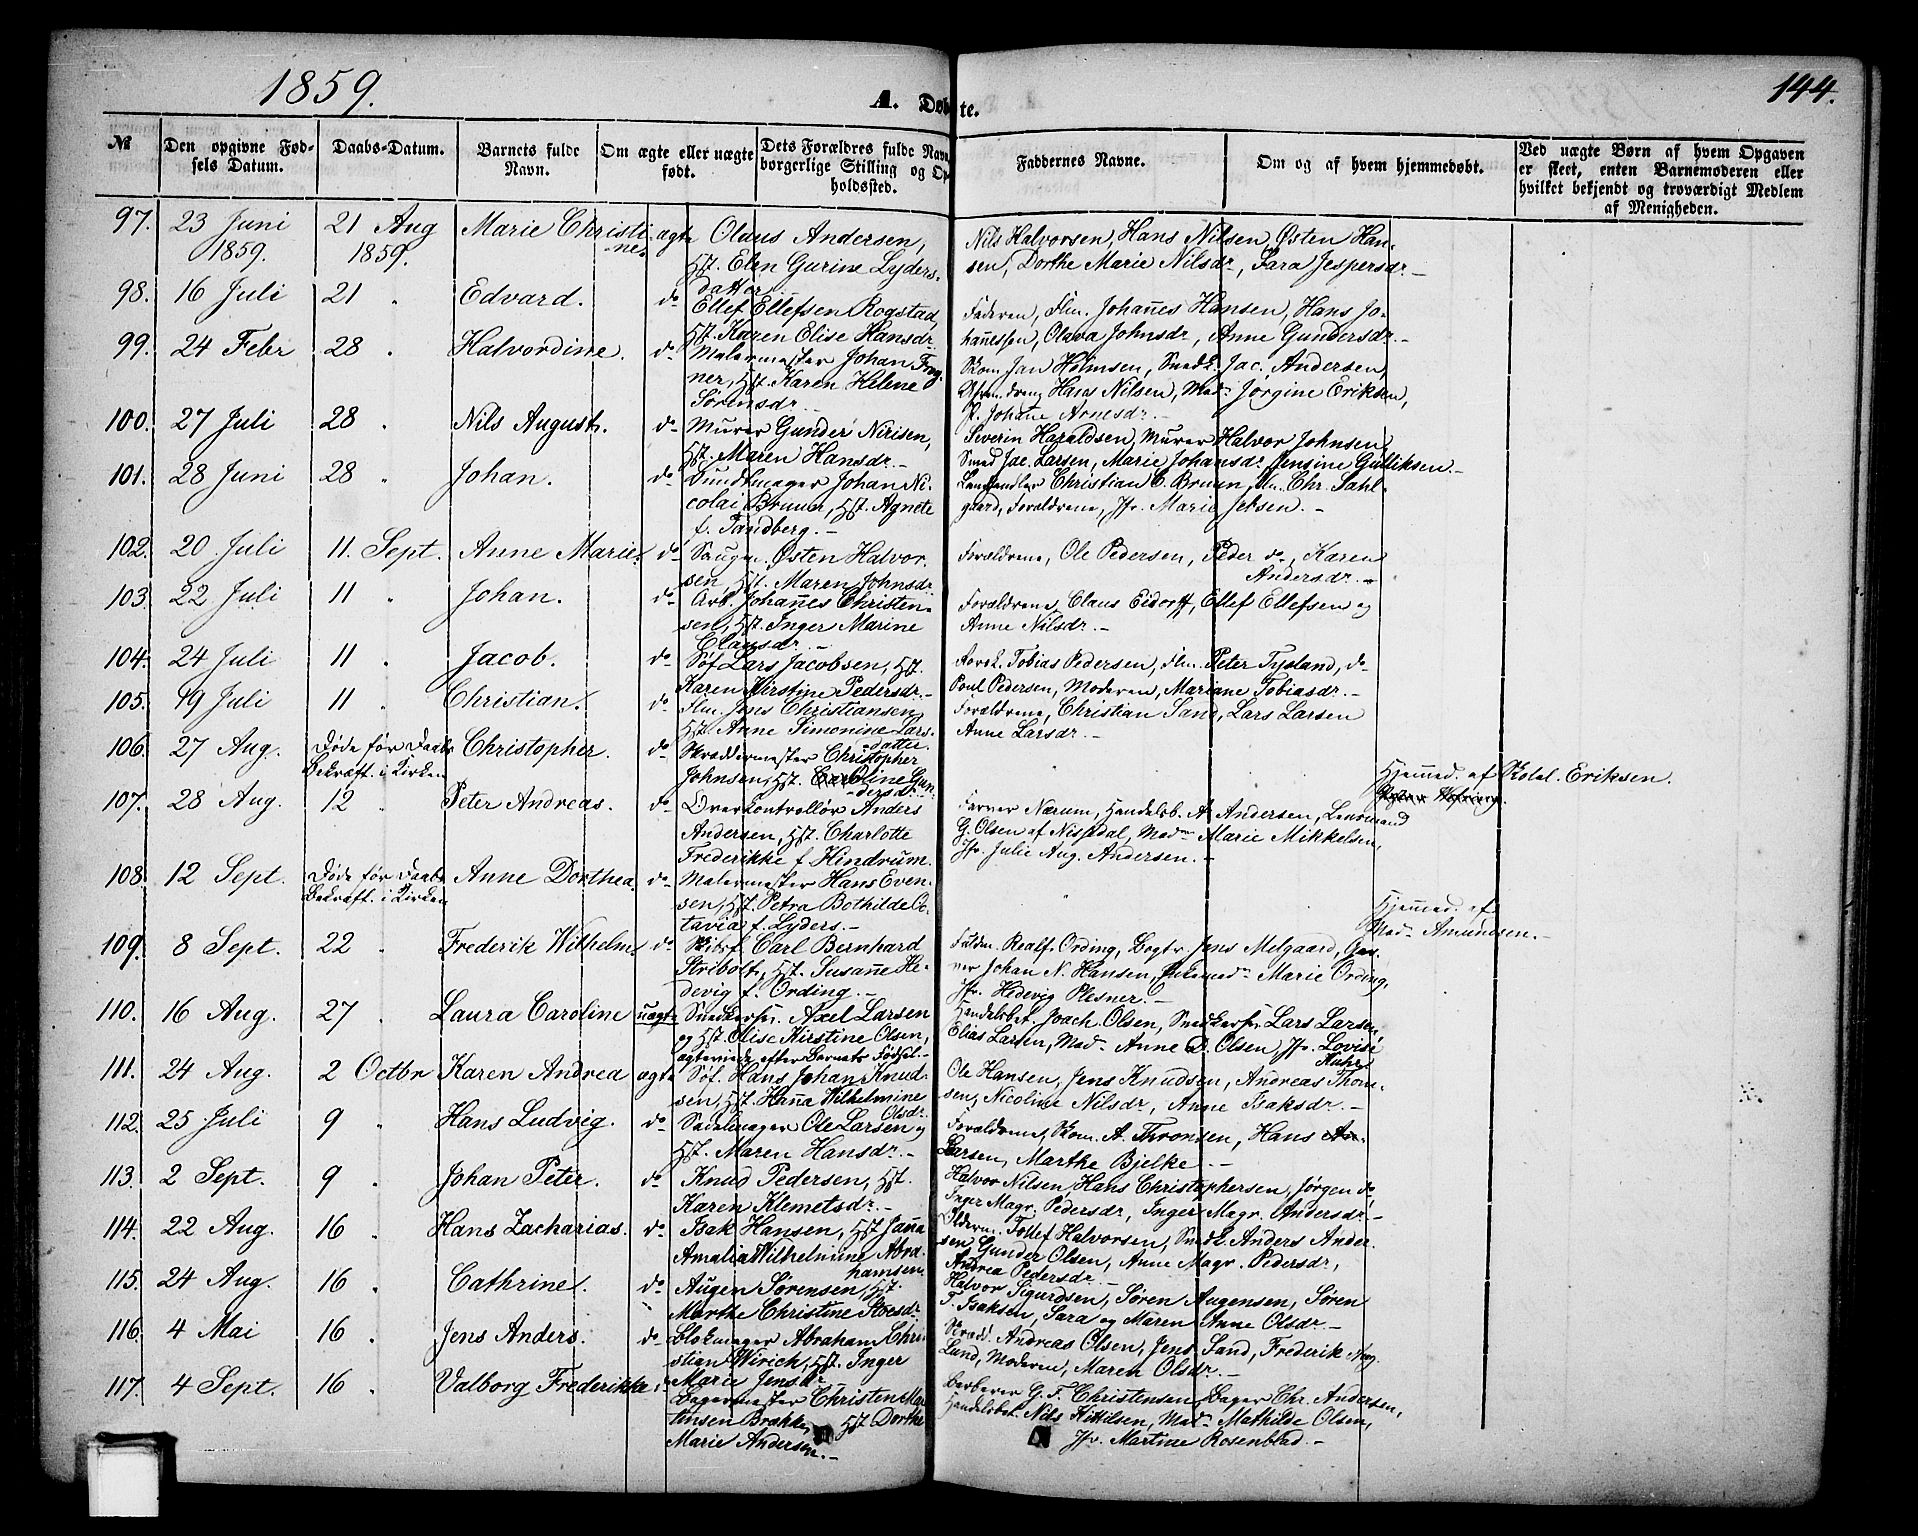 1859.
A. Døbte.
144.
№
Den opgivne Fødsels Datum.
Daabs-Datum.
Barnets fulde Navn.
Om ægte eller uægte født.
Dets Forældres fulde Navn, borgerlige Stilling og Opholdssted.
Faddernes Navne.
Om og af hvem hjemmedøbt.
Ved uægte Børn af hvem Opgaven er skeet, enten Barnemoderen eller hvilket bekjendt og troværdigt Medlem af Menigheden.
97. 23 Juni 1859. 21 Aug 1859. Marie Christine ægte Olaus Andersen, Hst. Elen Gurine Lydersdatter
Nils Halvorsen, Hans Nilsen, Østen Hansen, Dorthe Marie Nilsdr, Sara Jespersdr.
98. 16 Juli 21 " Edvard. do Ellef Ellefsen Rogstad, Hst. Karen Elise Hansdr
Faderen, Flm. Johañes Hansen, Hans Johañessen, Olava Johnsdr, Anne Gundersdr.
99. 24 Febr 28 " Halvordine. do Malermester Johan Hst. Karen Helene Sørensdr
Skom. Jan Holmsen, Smedk. Jac. Andersen, Hans Nilsen, Mad. Jørgine Eriksen, P. Johane Arnesdr.
100. 27 Juli 28 " Nils August. do Murer Gunder Nirisen, Hst. Maren Hansdr.
Severin Haraldsen, Murer Halvor Johnsen, Smed Jac. Larsen, Marie Johansdr Jensine Gulliksen.
101. 28 Juni 28 " Johan. do Buntmager Johan Nicolai Bruun, Hst. Agnete f. Tandberg.
Christian C. Bruun, Chr. Dahlgaard, Forældrene, Jfr. Marie Jensen.
102. 20 Juli 11. Sept. Anne Marie. do Saugm. Østen Halvorsen, Hst. Maren Johnsdr
Forældrene, Ole Pedersen, Peder do, Karen Andersdr.
103. 22 Juli 11 " Johan. do Arb. Johañes Christensen, Hst. Inger Marine Clausdr.
Forældrene, Claus Eidorff, Ellef Ellefsen og Anne Nilsdr.
104. 24 Juli 11 " Jacob. do Søf. Lars Jacobsen, Hst. Karen Kirstine Pedersdr.
Tobias Pedersen, Flm. Peter Tysland, do Poul Pedersen, Moderen, Mariane Tobiasdr.
105. 19 Juli 11 " Christian. do Flm. Jens Christiansen, Hst. Anne Simonine Larsdatter.
Forældrene, Christian Sand, Lars Larsen Anne Larsdr.
106. 27 Aug. Døde før Daabs Bekræft. i Kirken Christopher. do Skræddermester Christopher Johnsen, Hst. Caroline Gundersdr.
" Hjemed. af Skolel. Eriksen.
107. 28 Aug. 12 " Peter Andreas. do Overkontrollør Anders Andersen, Hst. Charlotte Frederikke f. Hindrum.
Farver Nærum, Handelsb. A. Andersen, Lensmand G. Olsen af Nissedal, Mad. Marie Mikkelsen, Jfr. Julie Aug. Andersen.
108. 12 Sept. Døde før Daabs Bekræft. i Kirken Anne Dorthea. do Malermester Hans Evensen, Hst. Petra Bothilde Octavia f. Lyders.
" Hjemed. af Mad. Amundsen.
109. 8 Sept. 22 " Frederik Wilhelm do Skibsf. Carl Bernhard Stribolt, Hst. Susañe Hedevig f. Ording.
Fuldm. Realf. Ording, Bogtr. Jens Melgaard, Garver Johan N. Hansen, Enkemad. Marie Ording, Jfr. Hedevig Plesner.
110. 16 Aug. 27 " Laura Caroline uægte Snedkersv. Axel Larsen og Hst. Olise Kirstine Olsen, ægteviede efter Barnets Fødsel.
Handelsbet. Joach. Olsen, Snedkersv. Lars Larsen, Elias Larsen, Mad. Anne D. Olsen Jfr. Lovise
111. 24 Aug. 2 Octbr Karen Andrea ægte Søf. Hans Johan Knudsen, Hst. Hana Wilhelmine Olsdr.
Ole Hansen, Jens Knudsen, Andreas Thomsen, Nicoline Nilsdr, Anne Isaksdr.
112. 25 Juli 9 " Hans Ludvig. do Sadelmager Ole Larsen og Hst. Maren Hansdr.
Forældrene, Skom. A. Thronsen, Hans Larsen, Marthe Bjelke.
113. 2 Sept. 9 " Johan Peter. do Knud Pedersen, Hst. Karen Klemetsdr.
Halvor Nilsen, Hans Christophersen, Jørgen do, Inger Magr. Pedersdr, Inger Magr. Andersdr.
114. 22 Aug. 16 " Hans Zacharias. do Isak Hansen, Hst Jana Amalia Wilhelmine Abrahamsen.
Olderm. Tollef Halvorsen, Smedk. Anders Andersen Gunder Olsen, Anne Magr. Pedersdr, Andrea Pedersdr.
115. 24 Aug. 16 " Cathrine. do Augen Sørensen, Hst. Marthe Christine
Halvor Sigurdsen, Søren Augensen, Søren T. Isaksen, Sara og Maren Anne Olsdr.
116. 4 Mai 16 " Jens Anders. do Blokmager Abraham Christian Wirich, Hst. Inger Marie Jensdr
Skrædd. Andreas Olsen, Jens Sand, Frederik Lund, Moderen, Maren Olsdr.
117. 4 Sept. 16 " Valborg Frederikke Bagermester Christen Martinsen Brække, Hst. Dorthe Marie Andersen.
Barberer G. F. Christensen, Bager Chr. Andersen, Handelsbet. Nils Kittilsen, Mad. Mathilde Olsen, Jfr. Martine Rosenblad.